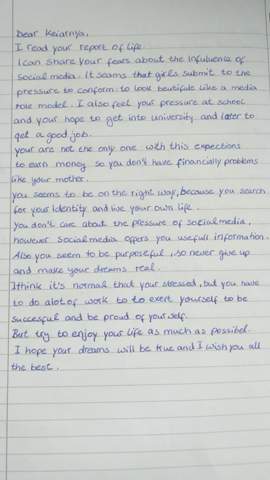 Dear Keiarnya,
I read your report of life.
I can share your fears about the infuluence of
social media. It seams that girls submit to the
pressure to conform: to look beutifule like a media
role model. I also feel your pressure at school
and your hope to get into university and later to
get a good job.
your are not the only one with this expections
to earn money so you don't have financially problems
like your mother.
you seems to be on the right way, because you search
for your identity and live your own life.
You don't care about the pressure of social media,
however social media offers you usefull information.
Also you seem to be purposeful, so never give up
and make your dreams real.
I think it's normal that your stressed, but you have
to do alot of work to to exert yourself to be
succesful and be proud of yourself.
But try to enjoy your life as much as possibel.
I hope your dreams will be true and I wish you all
the best.